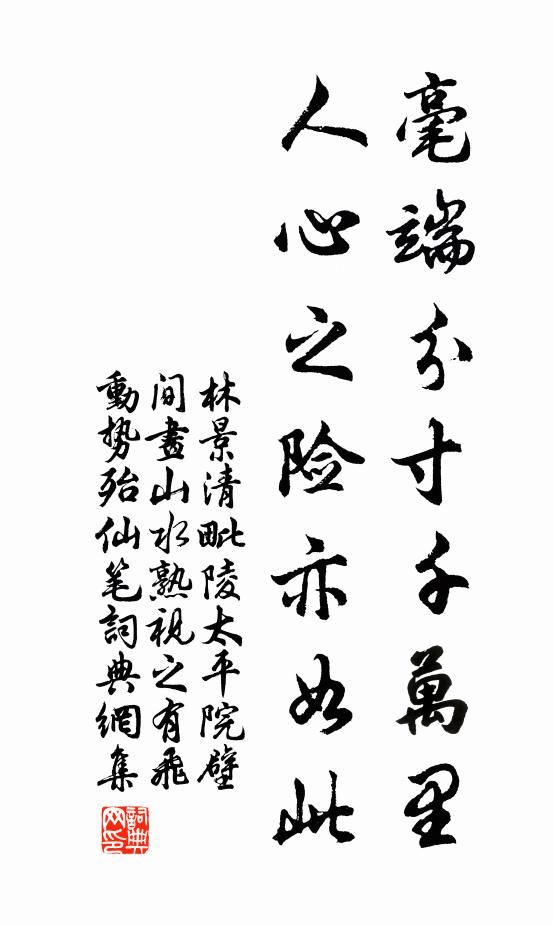 毫端分寸千萬里
人心之险亦如此
林景清毗陵太平院壁
间畫山水熟視之有飛
動势殆仙笔詞典網集
詞典
网印